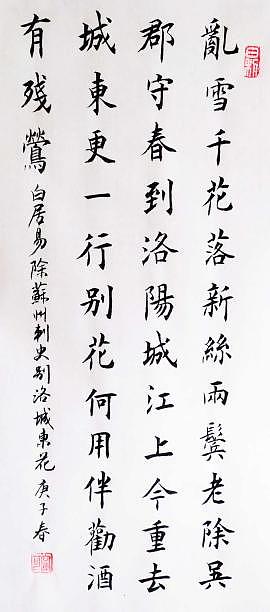 亂雪千花落新絲兩鬓老除吳
郡守春到洛陽城江上今重去
城東更一行别花何用伴勸酒
有残鶯
白居易除蘇州刺史别洛城東花 庚子春